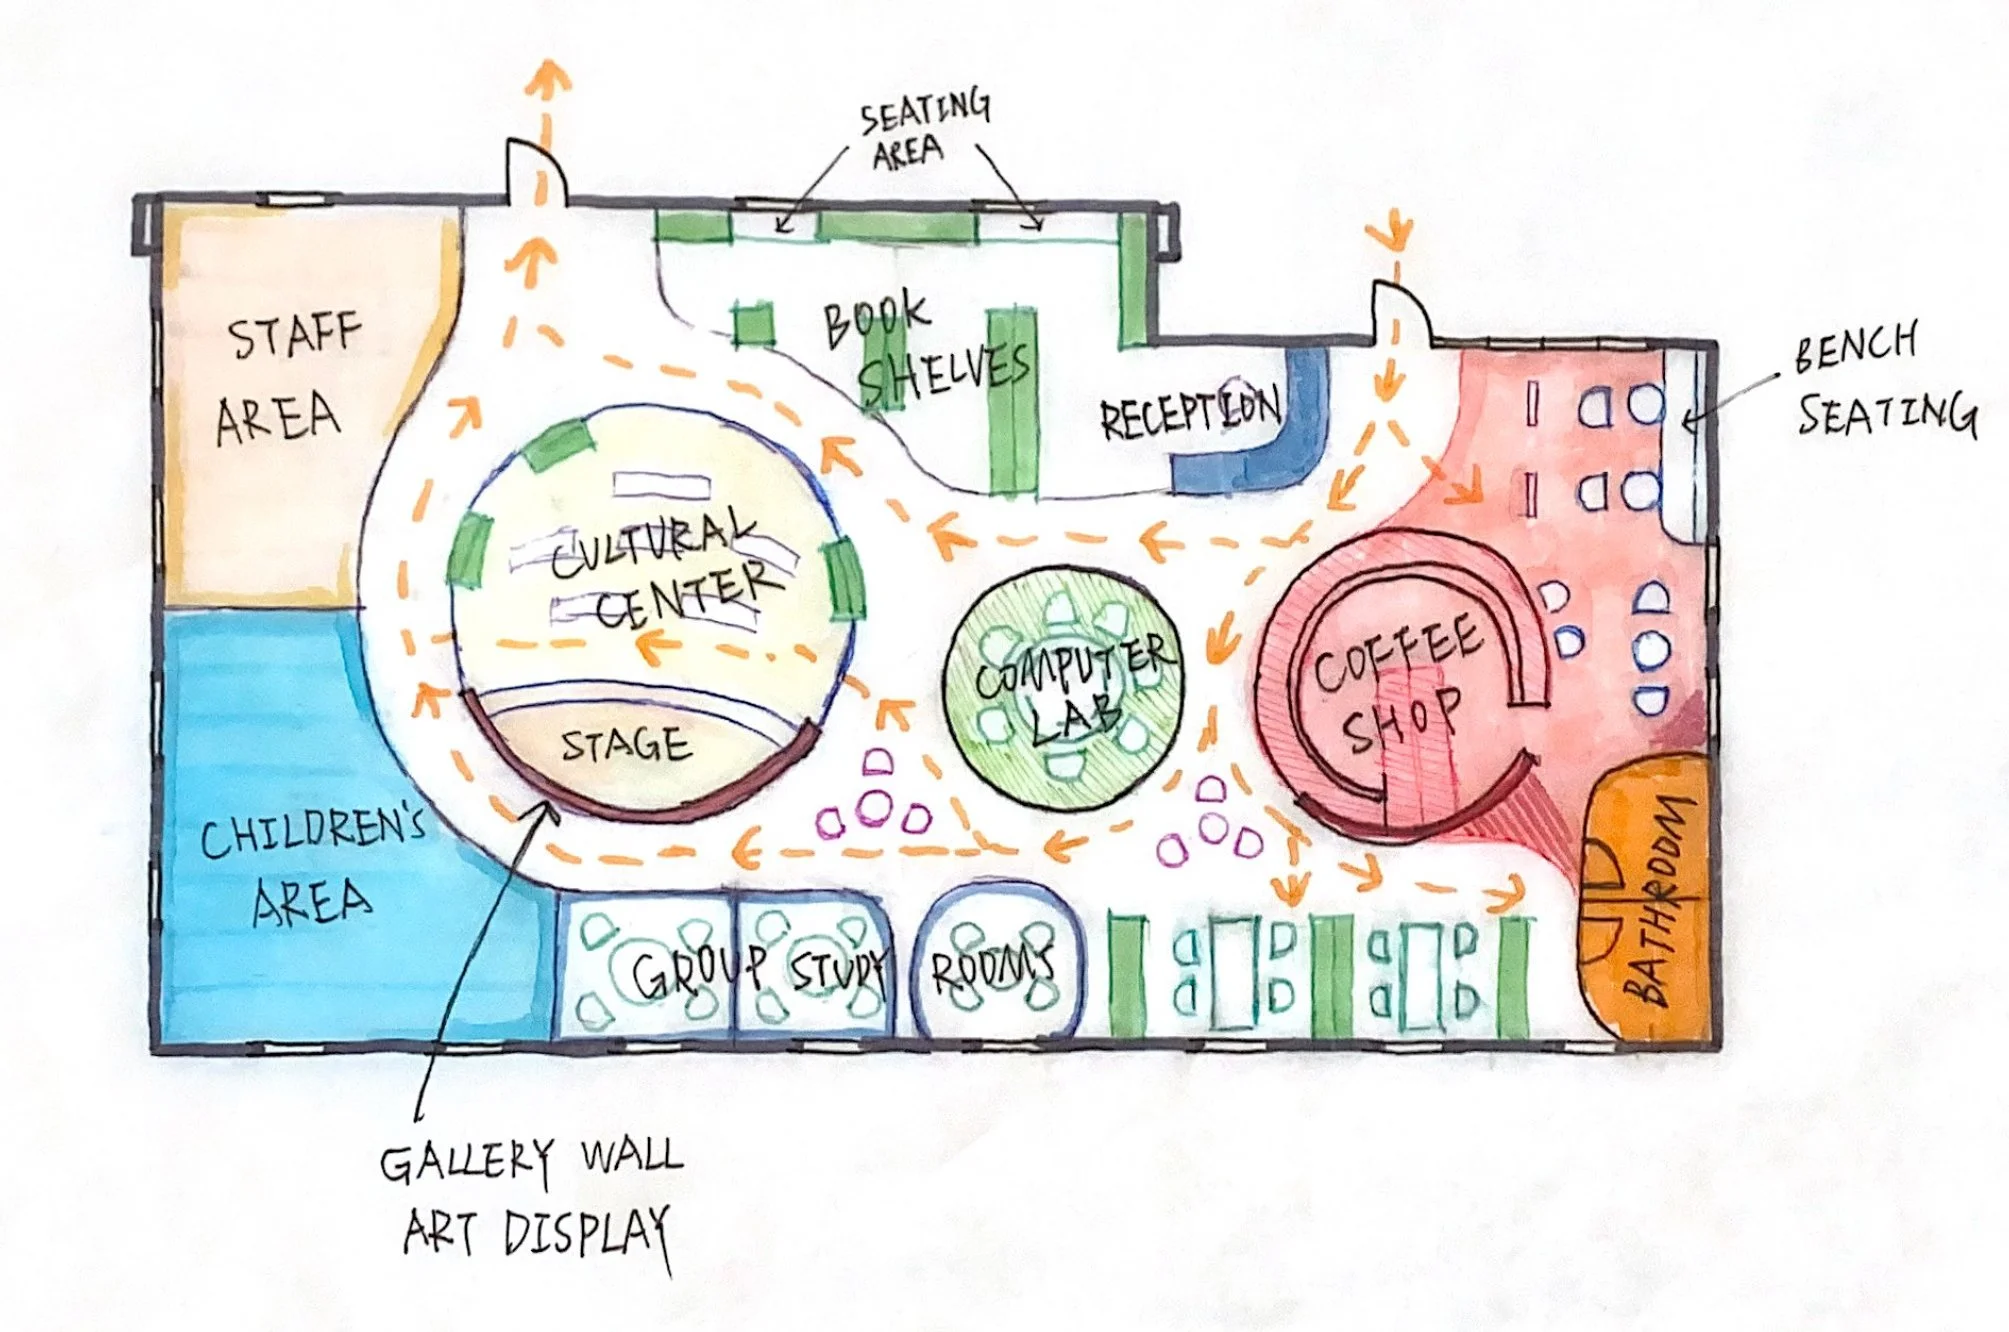 SEATING
AREA
STAFF
AREA
BOOK
SHELVES
RECEPTION
BENCH
SEATING
CULTURAL
CENTER
STAGE
COMPUTER
LAB
COFFEE
SHOP
CHILDREN'S
AREA
GROUP STUDY ROOMS
BATHROOM
GALLERY WALL
ART DISPLAY